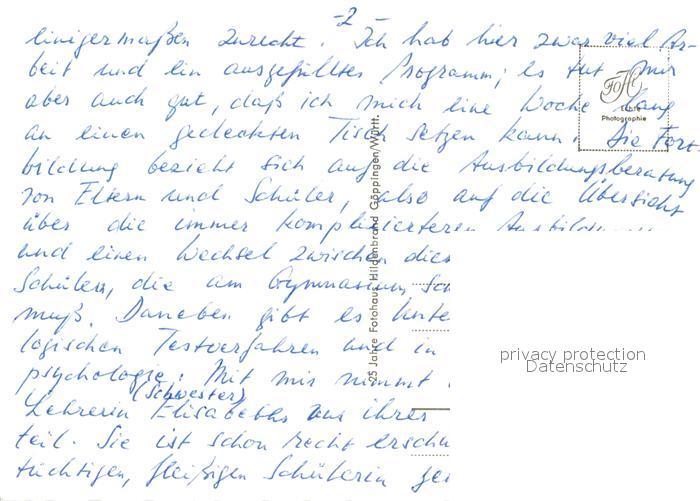 -2-
einigermaßen zurecht. Ich hab hier zwar viel Ar-
beit und ein ausgefülltes Programm; es tut mir
aber auch gut, daß ich mich eine Woche lang
an einen gedeckten Tisch setzen kann. Die Fort-
bildung bezieht sich auf die Ausbildungsberatung
von Eltern und Schüler, also auf die Übersicht
über die immer komplizierteren
und einen Wechsel zwischen
Schülern, die am Gymnasium
muß. Daneben gibt es
logischen Testverfahren und in
psychologie. Mit mir nimmt
(Schwester)
Lehrerin Elisabeths aus ihres
teil. Sie ist schon recht
tüchtigen, fleißigen Schülerin
FoH
25 Jahre
Photographie
25 Jahre Fotohaus Hildenbrand Göppingen/Württ.
privacy protection
Datenschutz